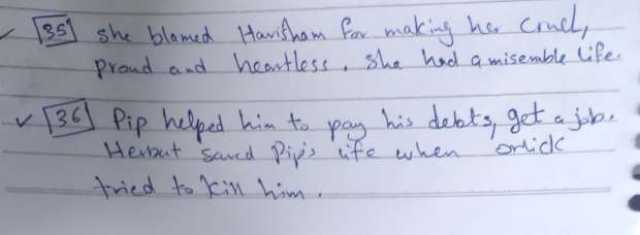 35 she blamed Havisham for making her cruel,
proud and heartless. She had a misemble life.
36 Pip helped him to pay his debts, get a job.
Herbut saved Pip's life when orlick
tried to kill him.